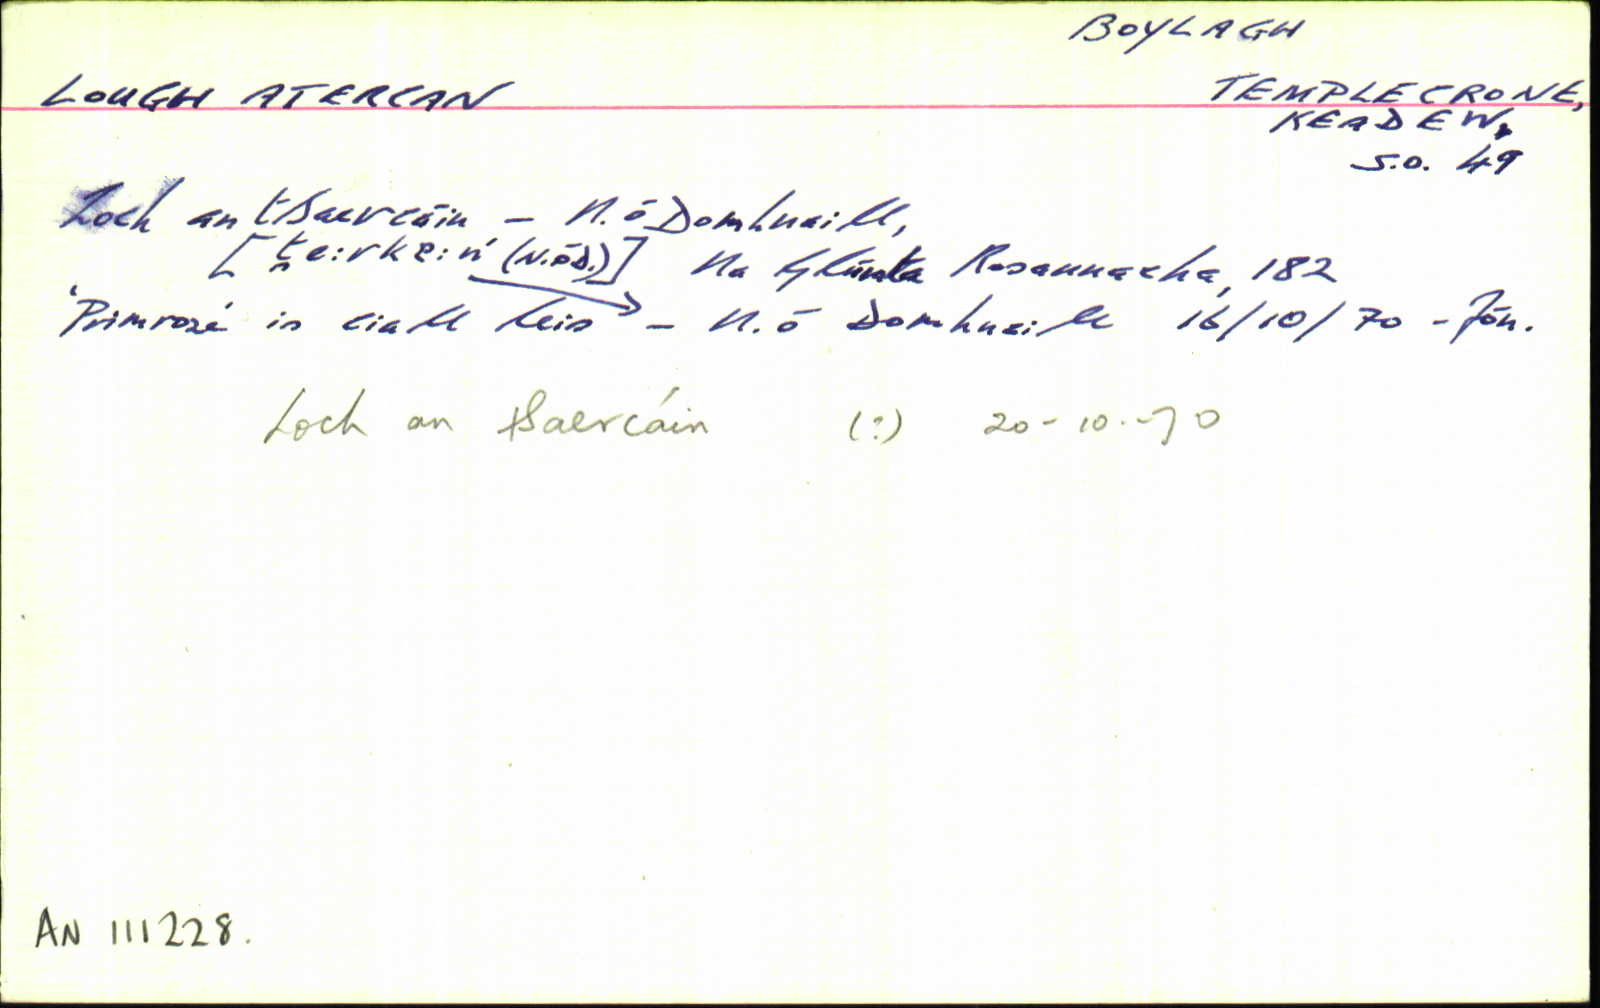 BOYLAGH
LOUGH ATERCAN
TEMPLECRONE,
KEADEW,
S.O. 49
Loch an tSaercáin – N. ó Domhnaill,
[t̪e:rkɐ:ń (N.ÓD.)] Na Glúnta Rosannacha, 182
'Primrose' is ciall leis – N. ó Domhnaill 16/10/70 - fón.
Loch an tSaercáin (?) 20-10-70
AN 111228.